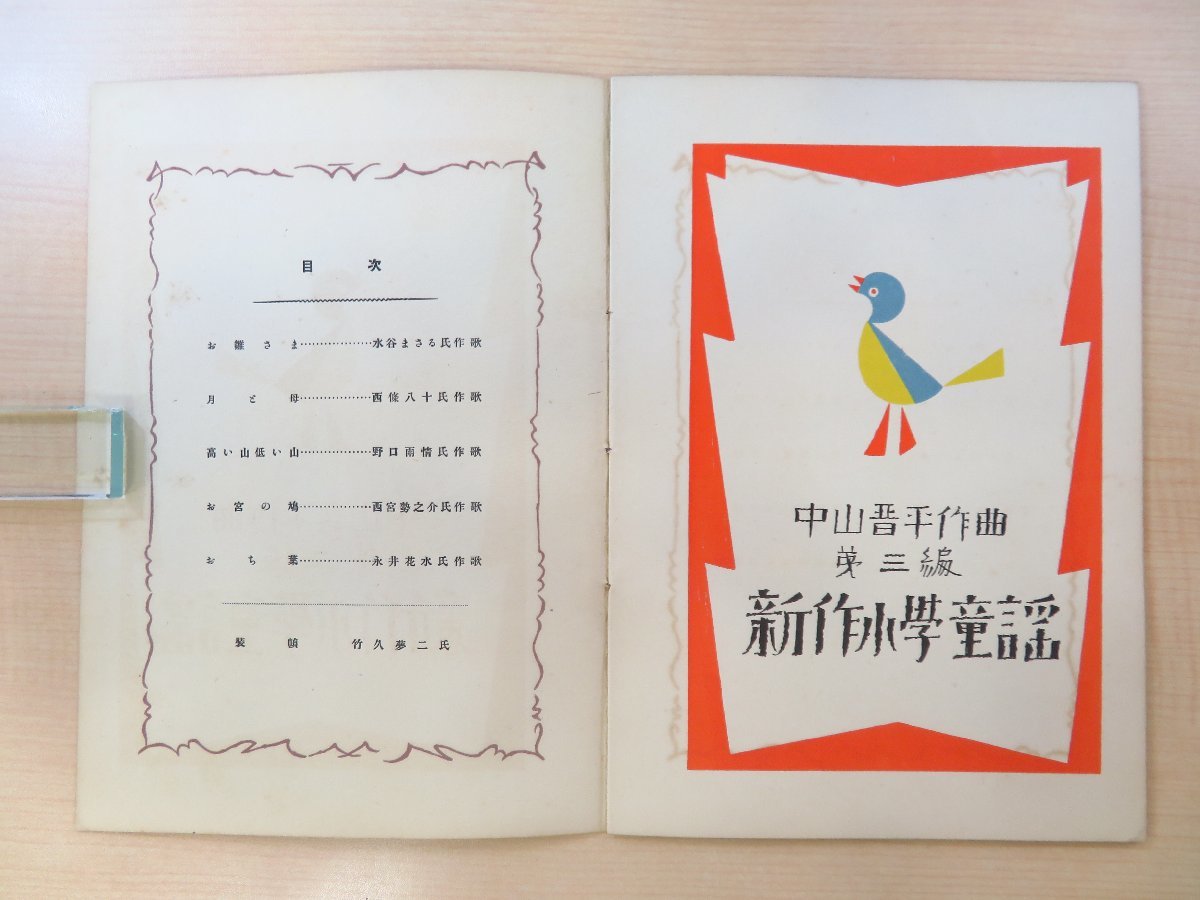 目次
お雛さま………………水谷まさる氏作歌
月と母………………西條八十氏作歌
高い山低い山………………野口雨情氏作歌
お宮の鳩………………西宮勢之介氏作歌
おち葉………………永井花水氏作歌
裝幀 竹久夢二氏
中山晋平作曲
第三編
新作小學童謡